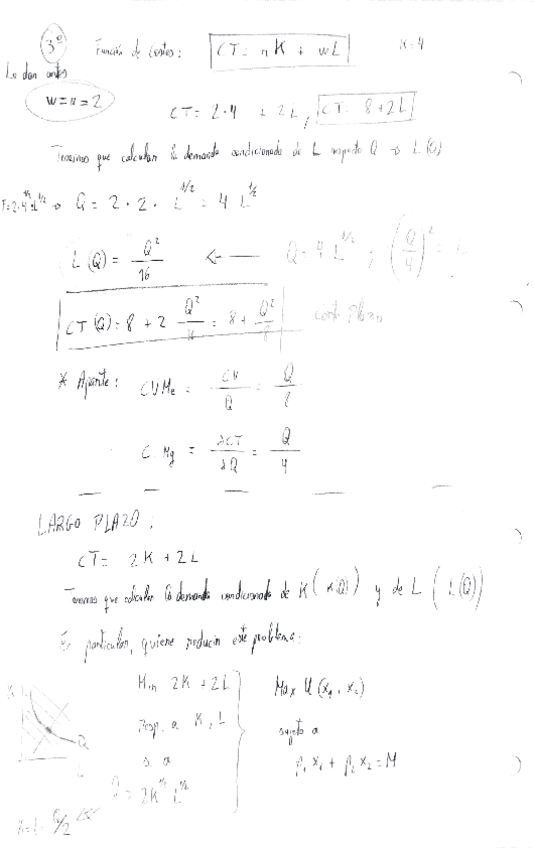 3º Función de Costes: CT = rK + wL K=4
Lo dan antes
w=r=2
CT= 2·4 + 2L, CT= 8+2L
Tenemos que calcular la demanda condicionada de L respecto Q → L(Q)
Q = 2 · 2 · L^1/2 = 4 L^1/2
L(Q) = Q²/16 ← Q = 4 L^1/2 ; (Q/4)² =
CT(Q) = 8 + 2 Q²/16 = 8 + Q²/8 corto plazo
* Aparte: CVMe = CV/Q = Q/8
C Mg = ∂CT/∂Q = Q/4
LARGO PLAZO:
CT= 2K + 2L
Tenemos que calcular la demanda condicionada de K (K(Q)) y de L (L(Q))
En particular, quiere reducir este problema:
Min 2K + 2L Max U(x₁, x₂)
Resp. a K, L sujeto a
s. a p₁ x₁ + p₂ x₂ = M
Q = 2K^1/2 L^1/2
K
Q
L